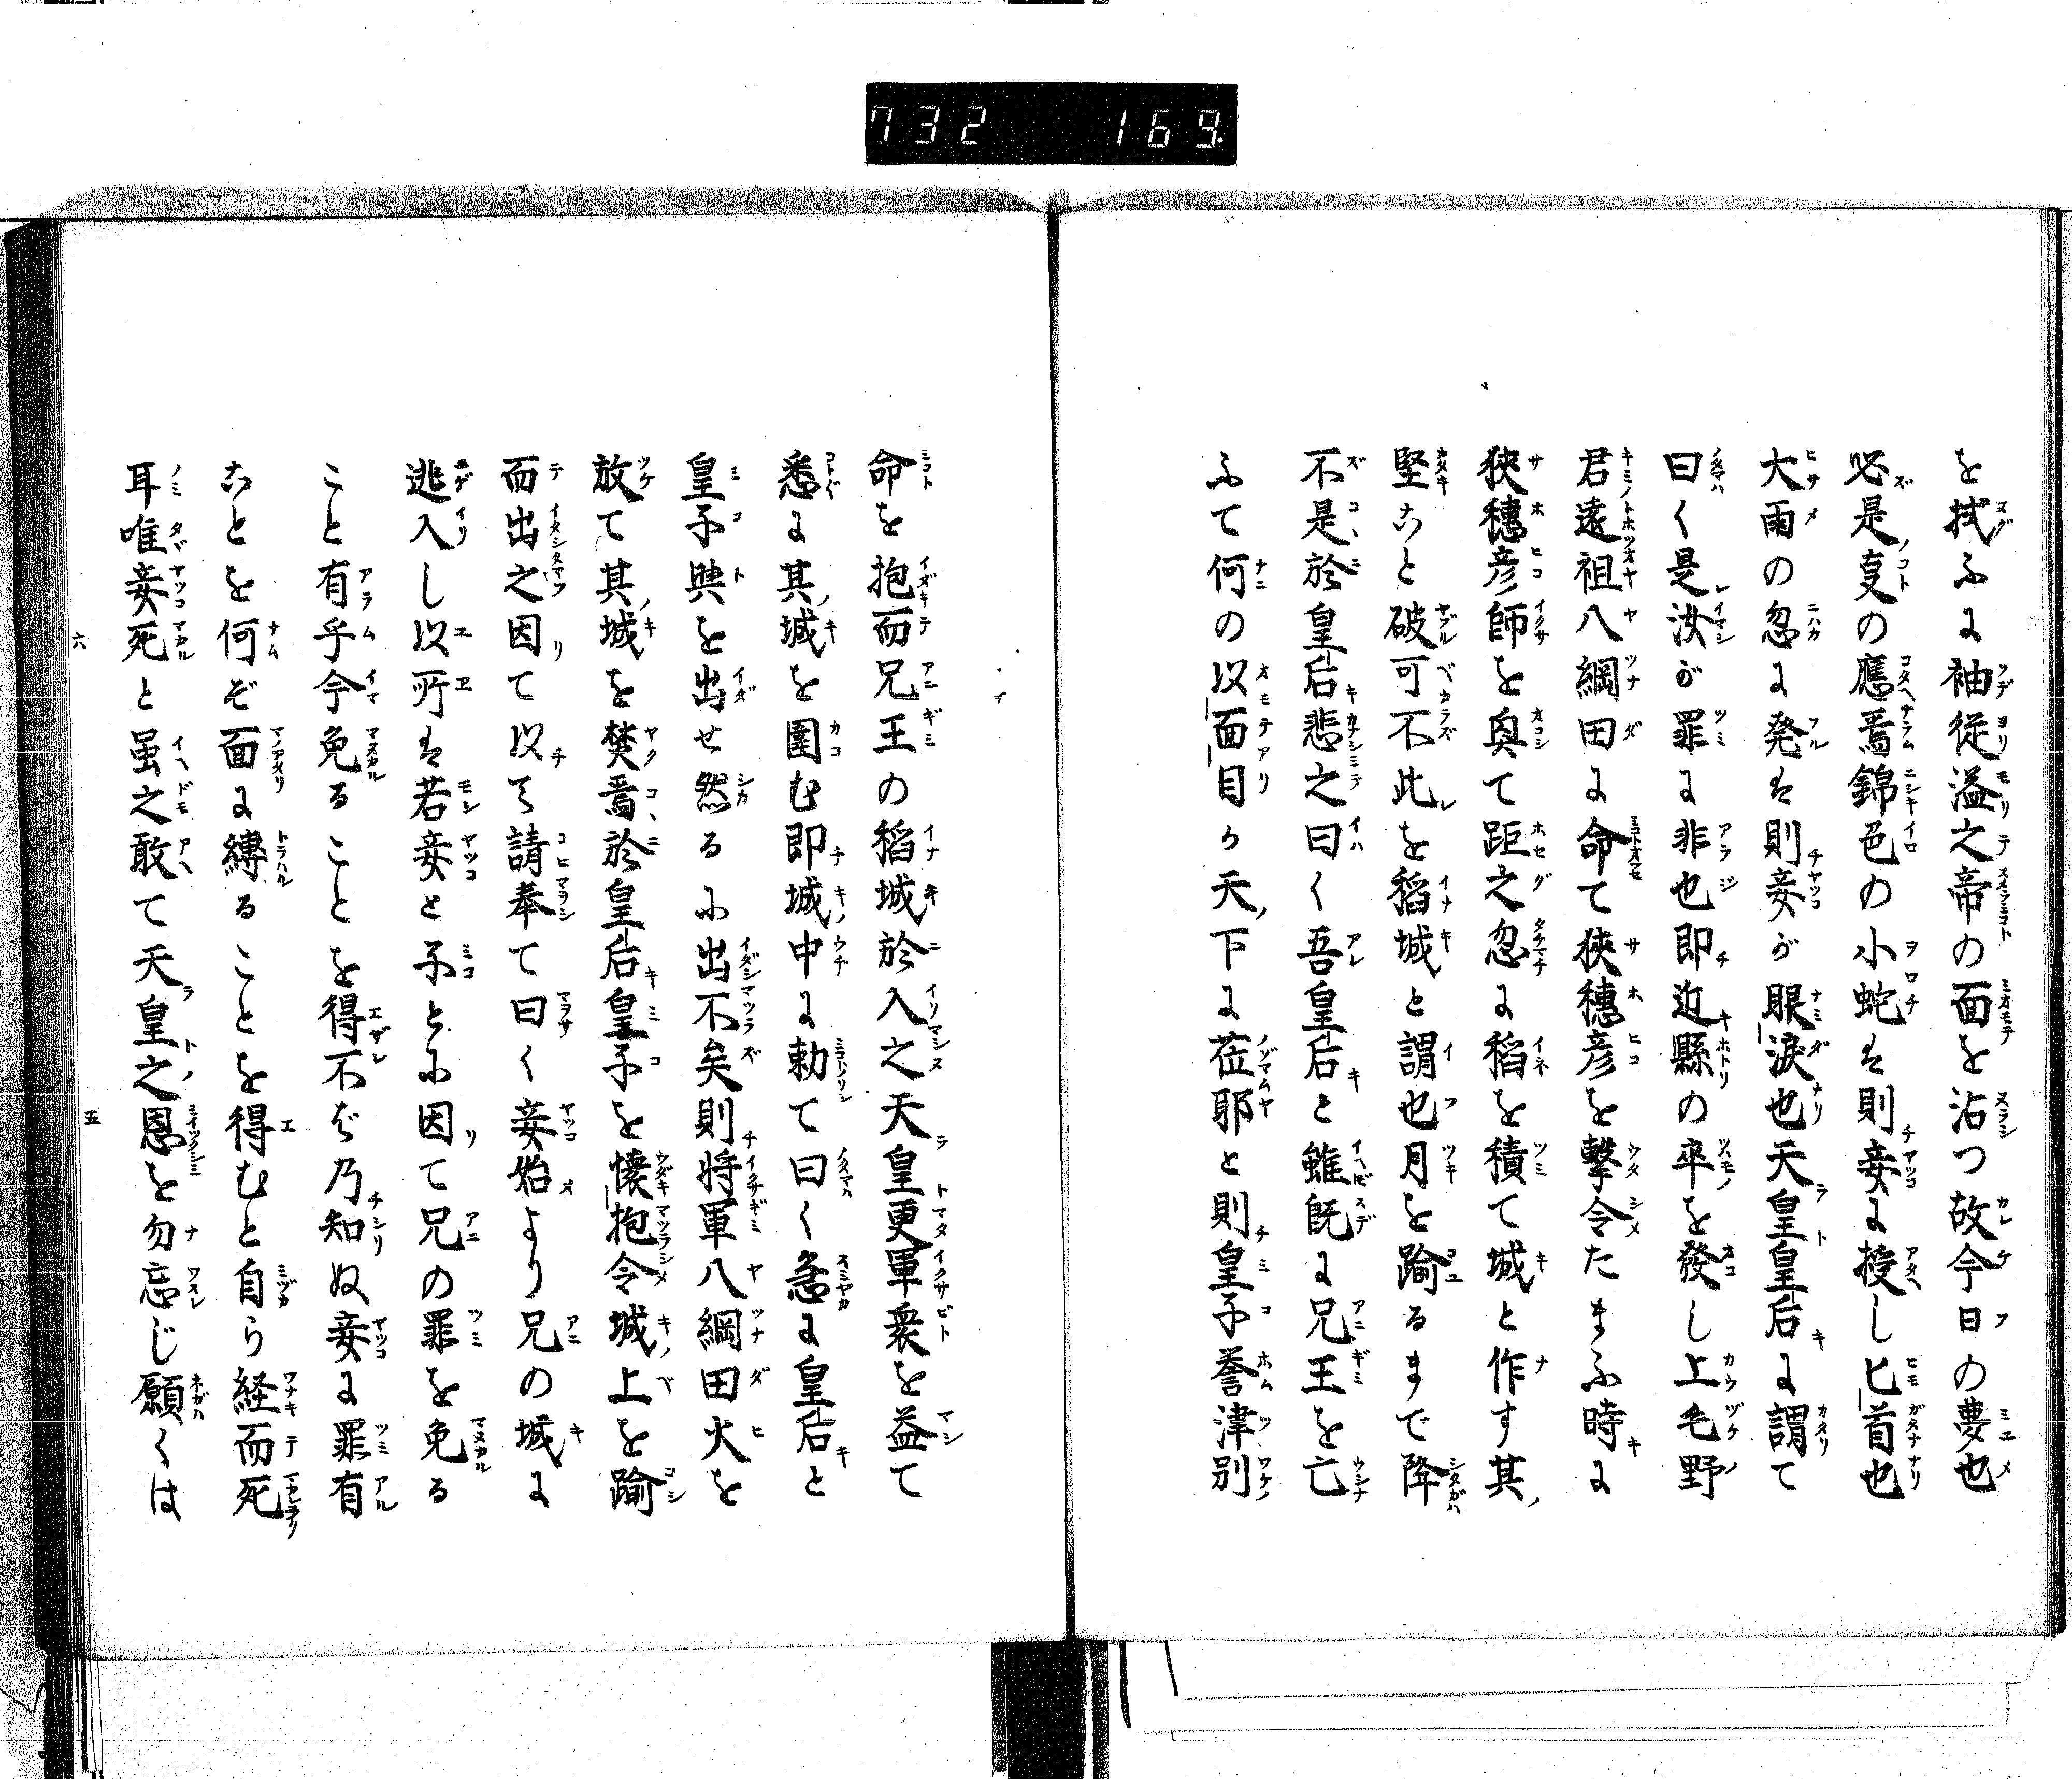 732 169.
を拭ふに袖従溢之帝の面を沾つ故今日の夢也
必是叓の應焉錦色の小蛇は則妾に授し匕首也
大雨の忽に発は則妾が眼涙也天皇皇后に謂て
曰く是汝が罪に非也即近縣の卒を發し上毛野
君遠祖八綱田に命て狹穗彦を撃令たまふ時に
狹穗彦師を興て距之忽に稻を積て城と作す其
堅ことと破可不此を稻城と謂也月を踰るまで降
不是於皇后悲之曰く吾皇后と雖既に兄王を亡
ふて何の以面目か天下に莅耶と則皇子誉津別
命を抱而兄王の稻城於入之天皇更軍衆を益て
悉に其城を圍む即城中に勅て曰く急に皇后と
皇子與を出せ然るに出不矣則将軍八綱田火を
放て其城を焚焉於皇后皇子を懐抱令城上を踰
而出之因て以て請奉て曰く妾始より兄の城に
逃入し以所は若妾と子とに因て兄の罪を免る
こと有乎今免ることを得不ば乃知ぬ妾に罪有
ことを何ぞ面に縛ることを得むと自ら経而死
耳唯妾死と虽之敢て天皇之恩を勿忘じ願くは
六
五